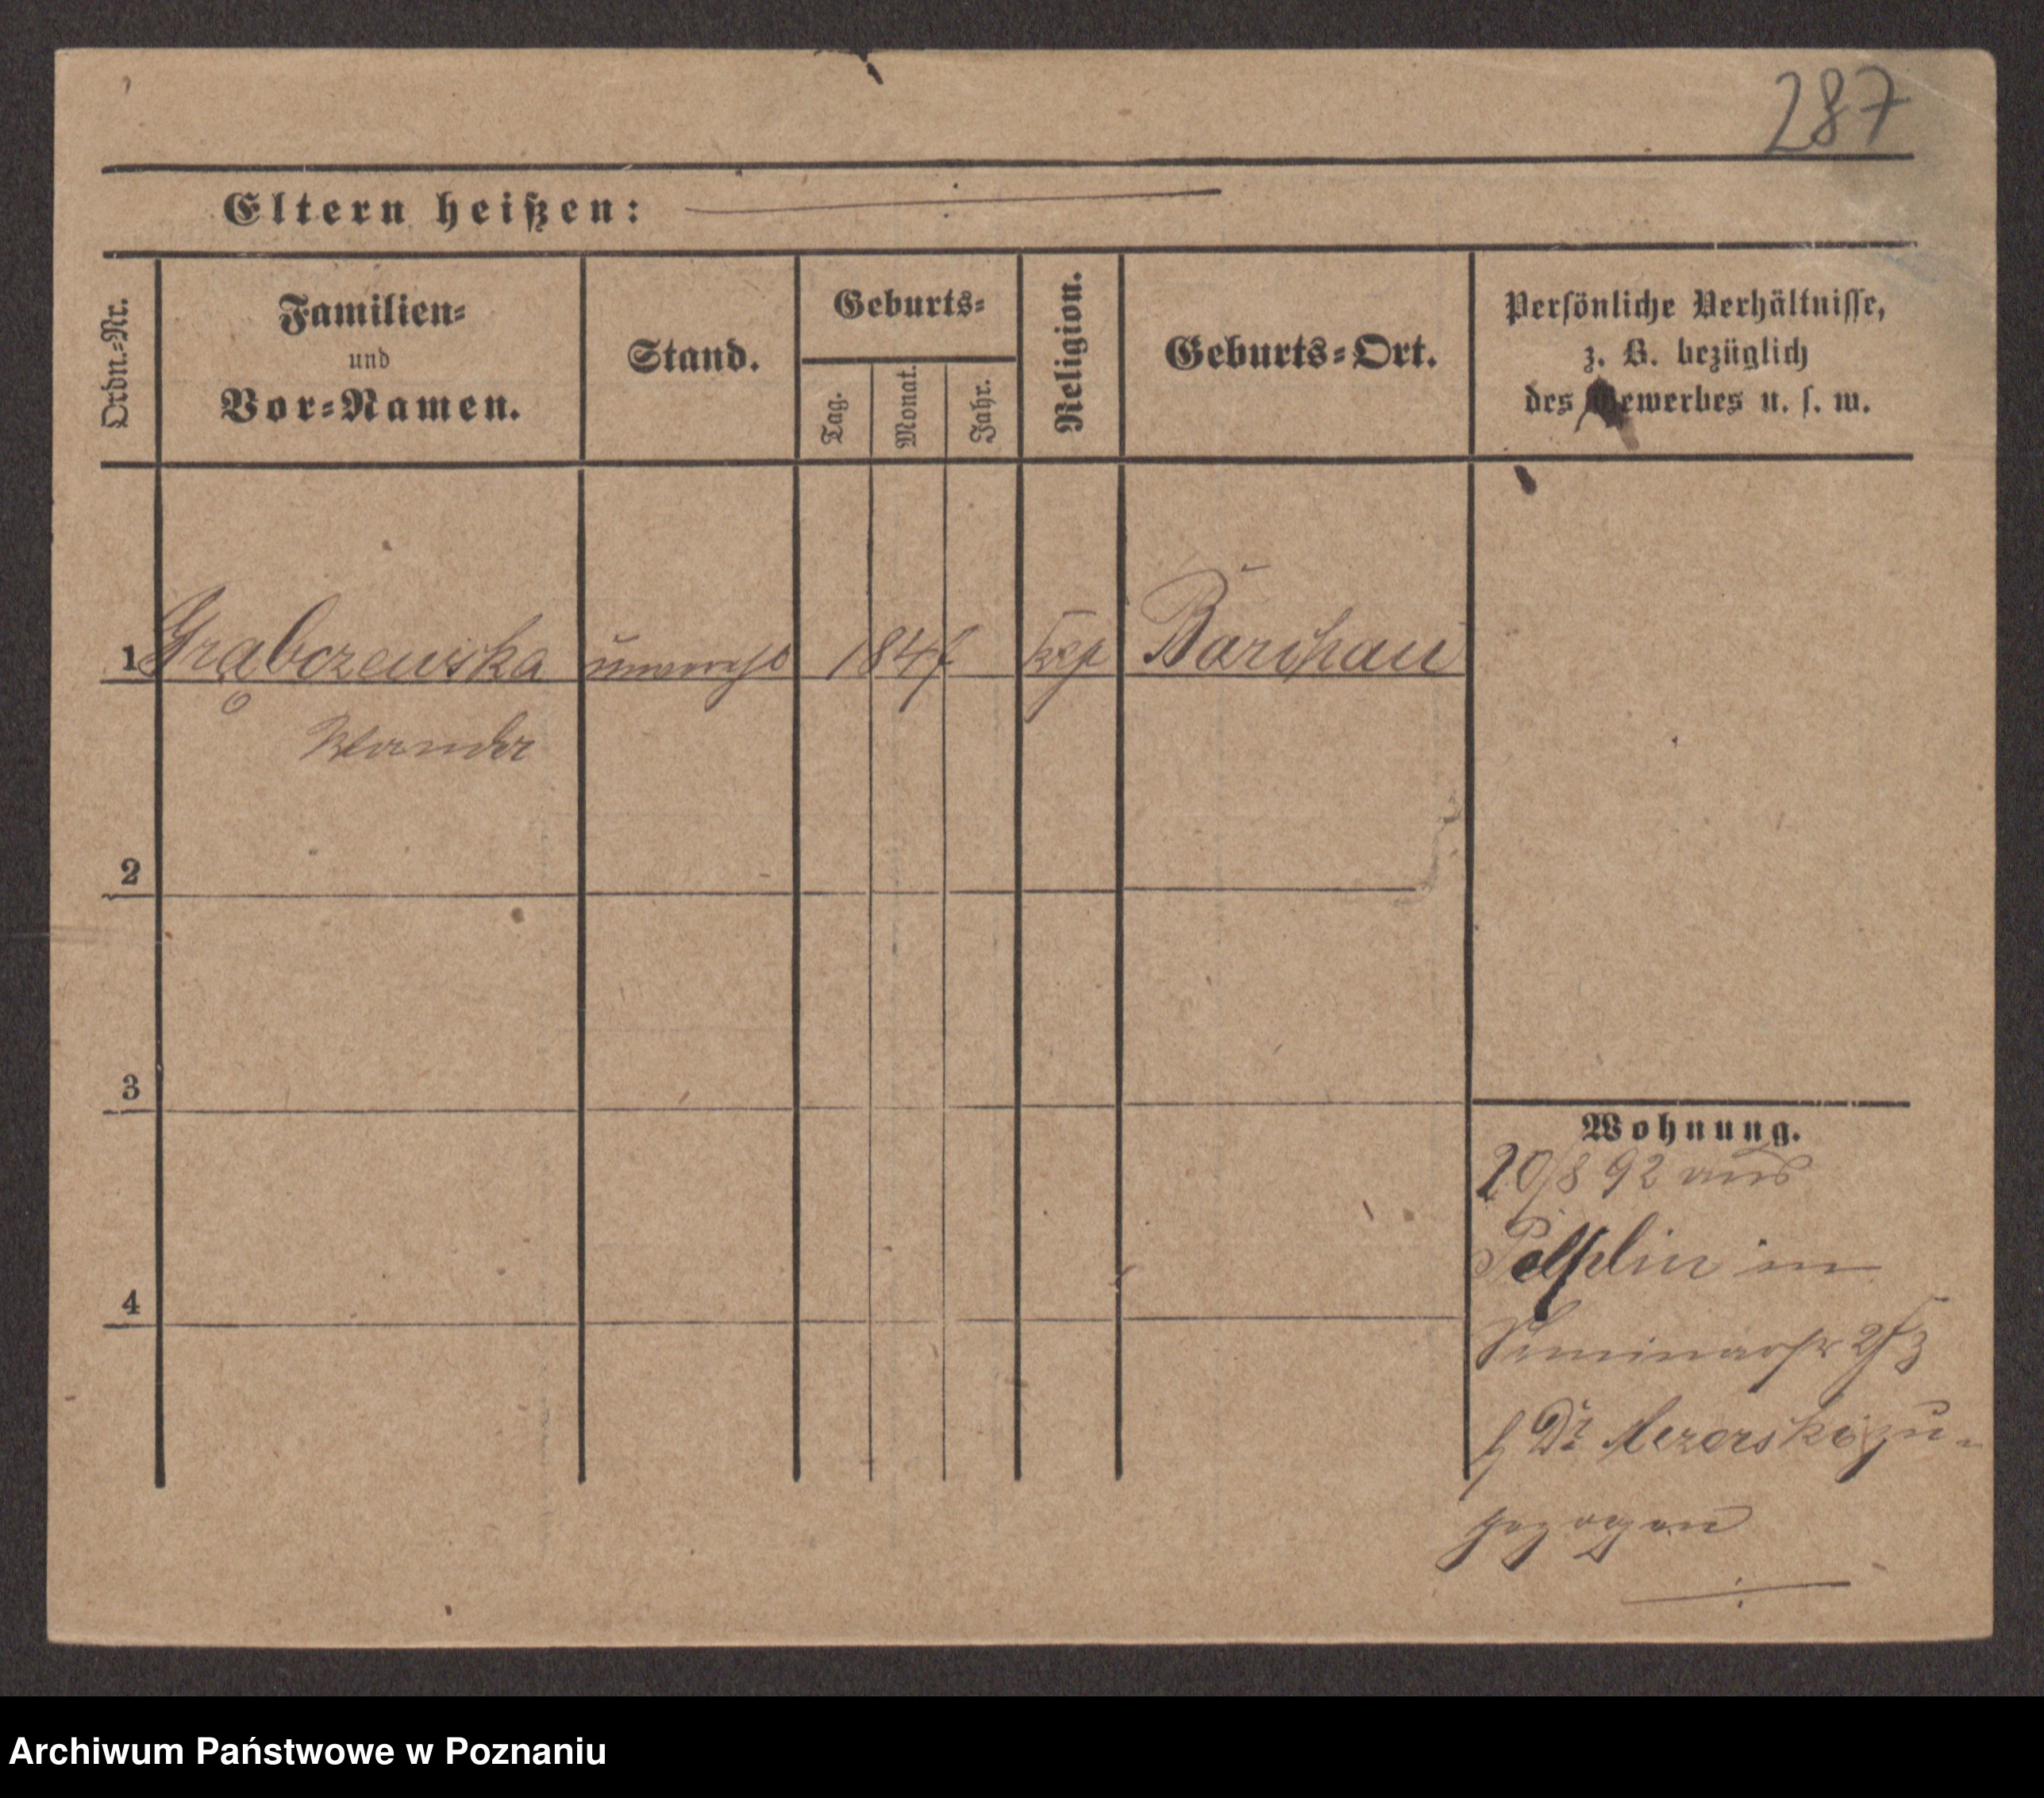 287
Eltern heißen:
Ordn.-Nr.
Familien-
und
Vor-Namen.
Stand.
Geburts-
Tag.
Monat.
Jahr.
Religion.
Geburts-Ort.
Persönliche Verhältnisse,
z. B. bezüglich
des Gewerbes u. s. w.
1 Grąbczewska unvereh 1847 kath Barchau
Wanda
2
3
4
Wohnung.
20/8 92 aus
Pelplin in
Seminarstr 2/3
b Dr zu-
gezogen
Archiwum Państwowe w Poznaniu